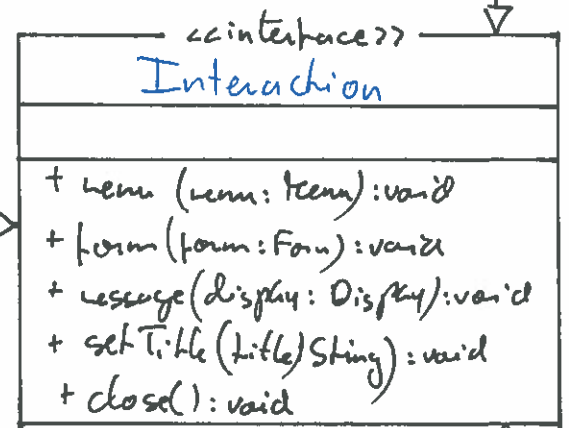 <<interface>>
Interaction
+ menu (menu: Menu): void
+ form (form: Form): void
+ message (display: Display): void
+ setTitle (title) String): void
+ close(): void